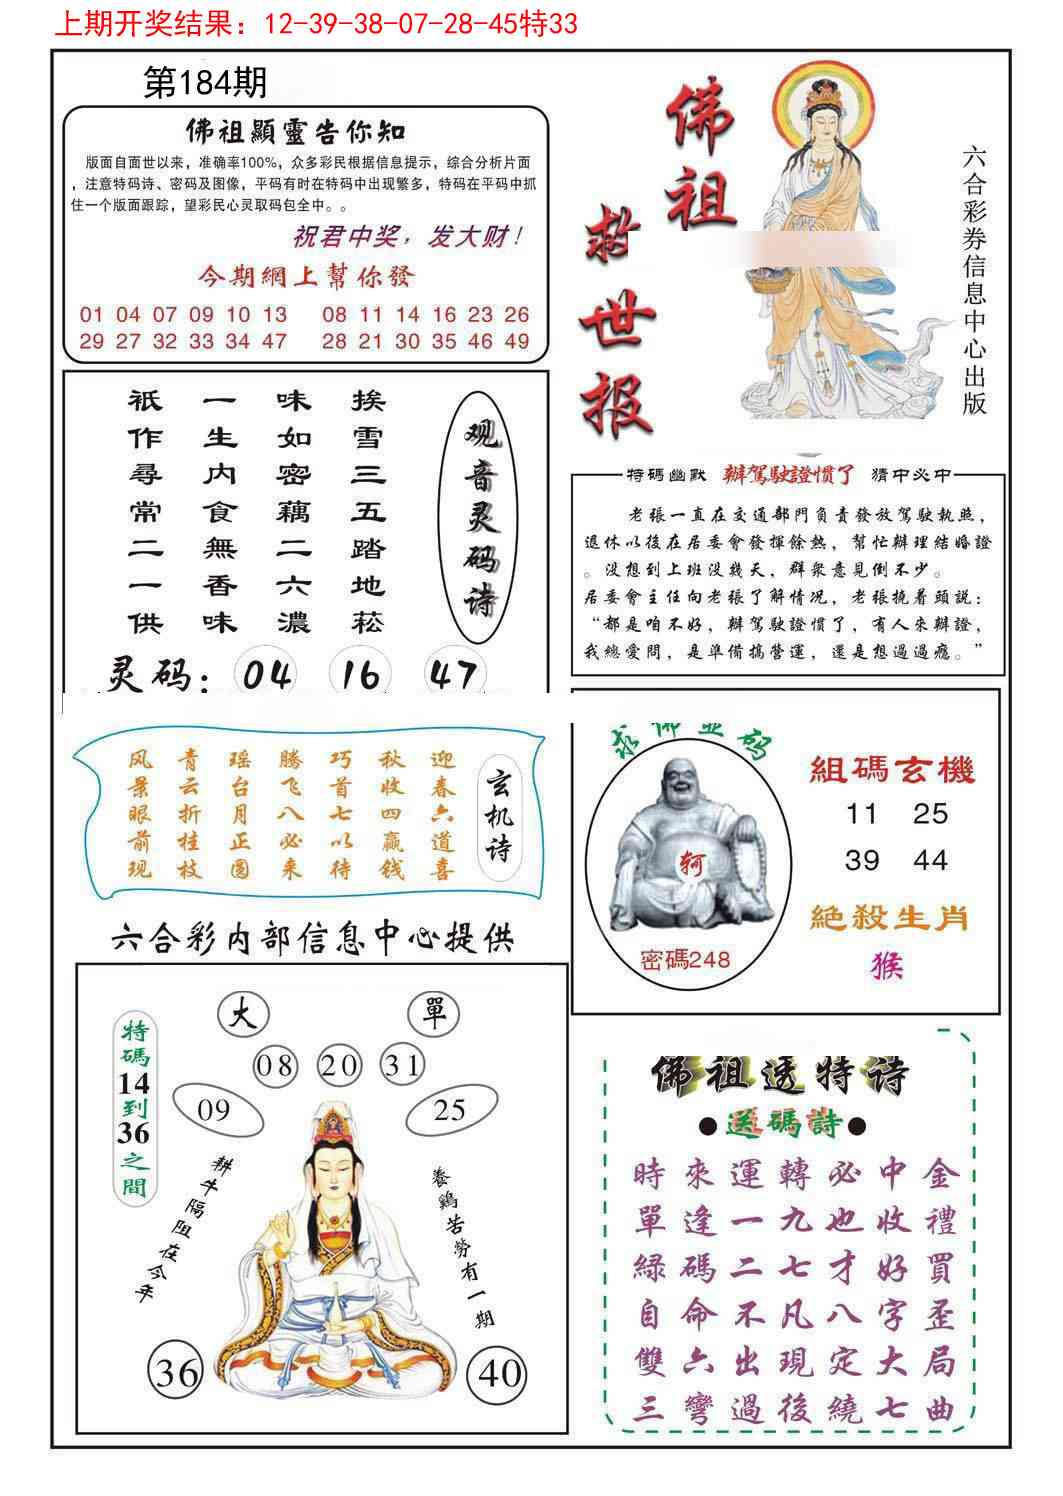 上期开奖结果：12-39-38-07-28-45特33
第184期
佛祖顯靈告你知
版面自面世以来，准确率100%，众多彩民根据信息提示，综合分析片面
，注意特码诗、密码及图像，平码有时在特码中出现繁多，特码在平码中抓
住一个版面跟踪，望彩民心灵取码包全中。。
祝君中奖，发大财！
今期網上幫你發
01 04 07 09 10 13 08 11 14 16 23 26
29 27 32 33 34 47 28 21 30 35 46 49
佛祖
救世报
六合彩券信息中心出版
观音灵码诗
挨雪三五踏地菘
味如密藕二六濃
一生内食無香味
祇作尋常二一供
灵码：04 16 47
特碼幽默 辦駕駛證慣了 猜中必中
老張一直在交通部門負責發放駕駛執照，
退休以後在居委會發揮餘熱，幫忙辦理結婚證
。没想到上班没幾天，群衆意見倒不少。
居委會主任向老張了解情况，老張撓着頭説：
“都是咱不好，辦駕駛證慣了，有人來辦證，
我總愛問，是準備搞營運，還是想過過癮。”
玄机诗
迎春六道喜
秋收四赢钱
巧首七以待
腾飞八必来
瑶台月正圆
青云折桂枝
风景眼前现
求佛显码
密碼248
組碼玄機
11 25
39 44
絶殺生肖
猴
六合彩内部信息中心提供
大 單
08 20 31
09 25
特碼14到36之間
耕牛隔阻在今年
養鷄苦勞有一期
36 40
佛祖透特诗
●送碼詩●
時來運轉必中金
單逢一九也收禮
綠碼二七才好買
自命不凡八字歪
雙六出現定大局
三彎過後繞七曲